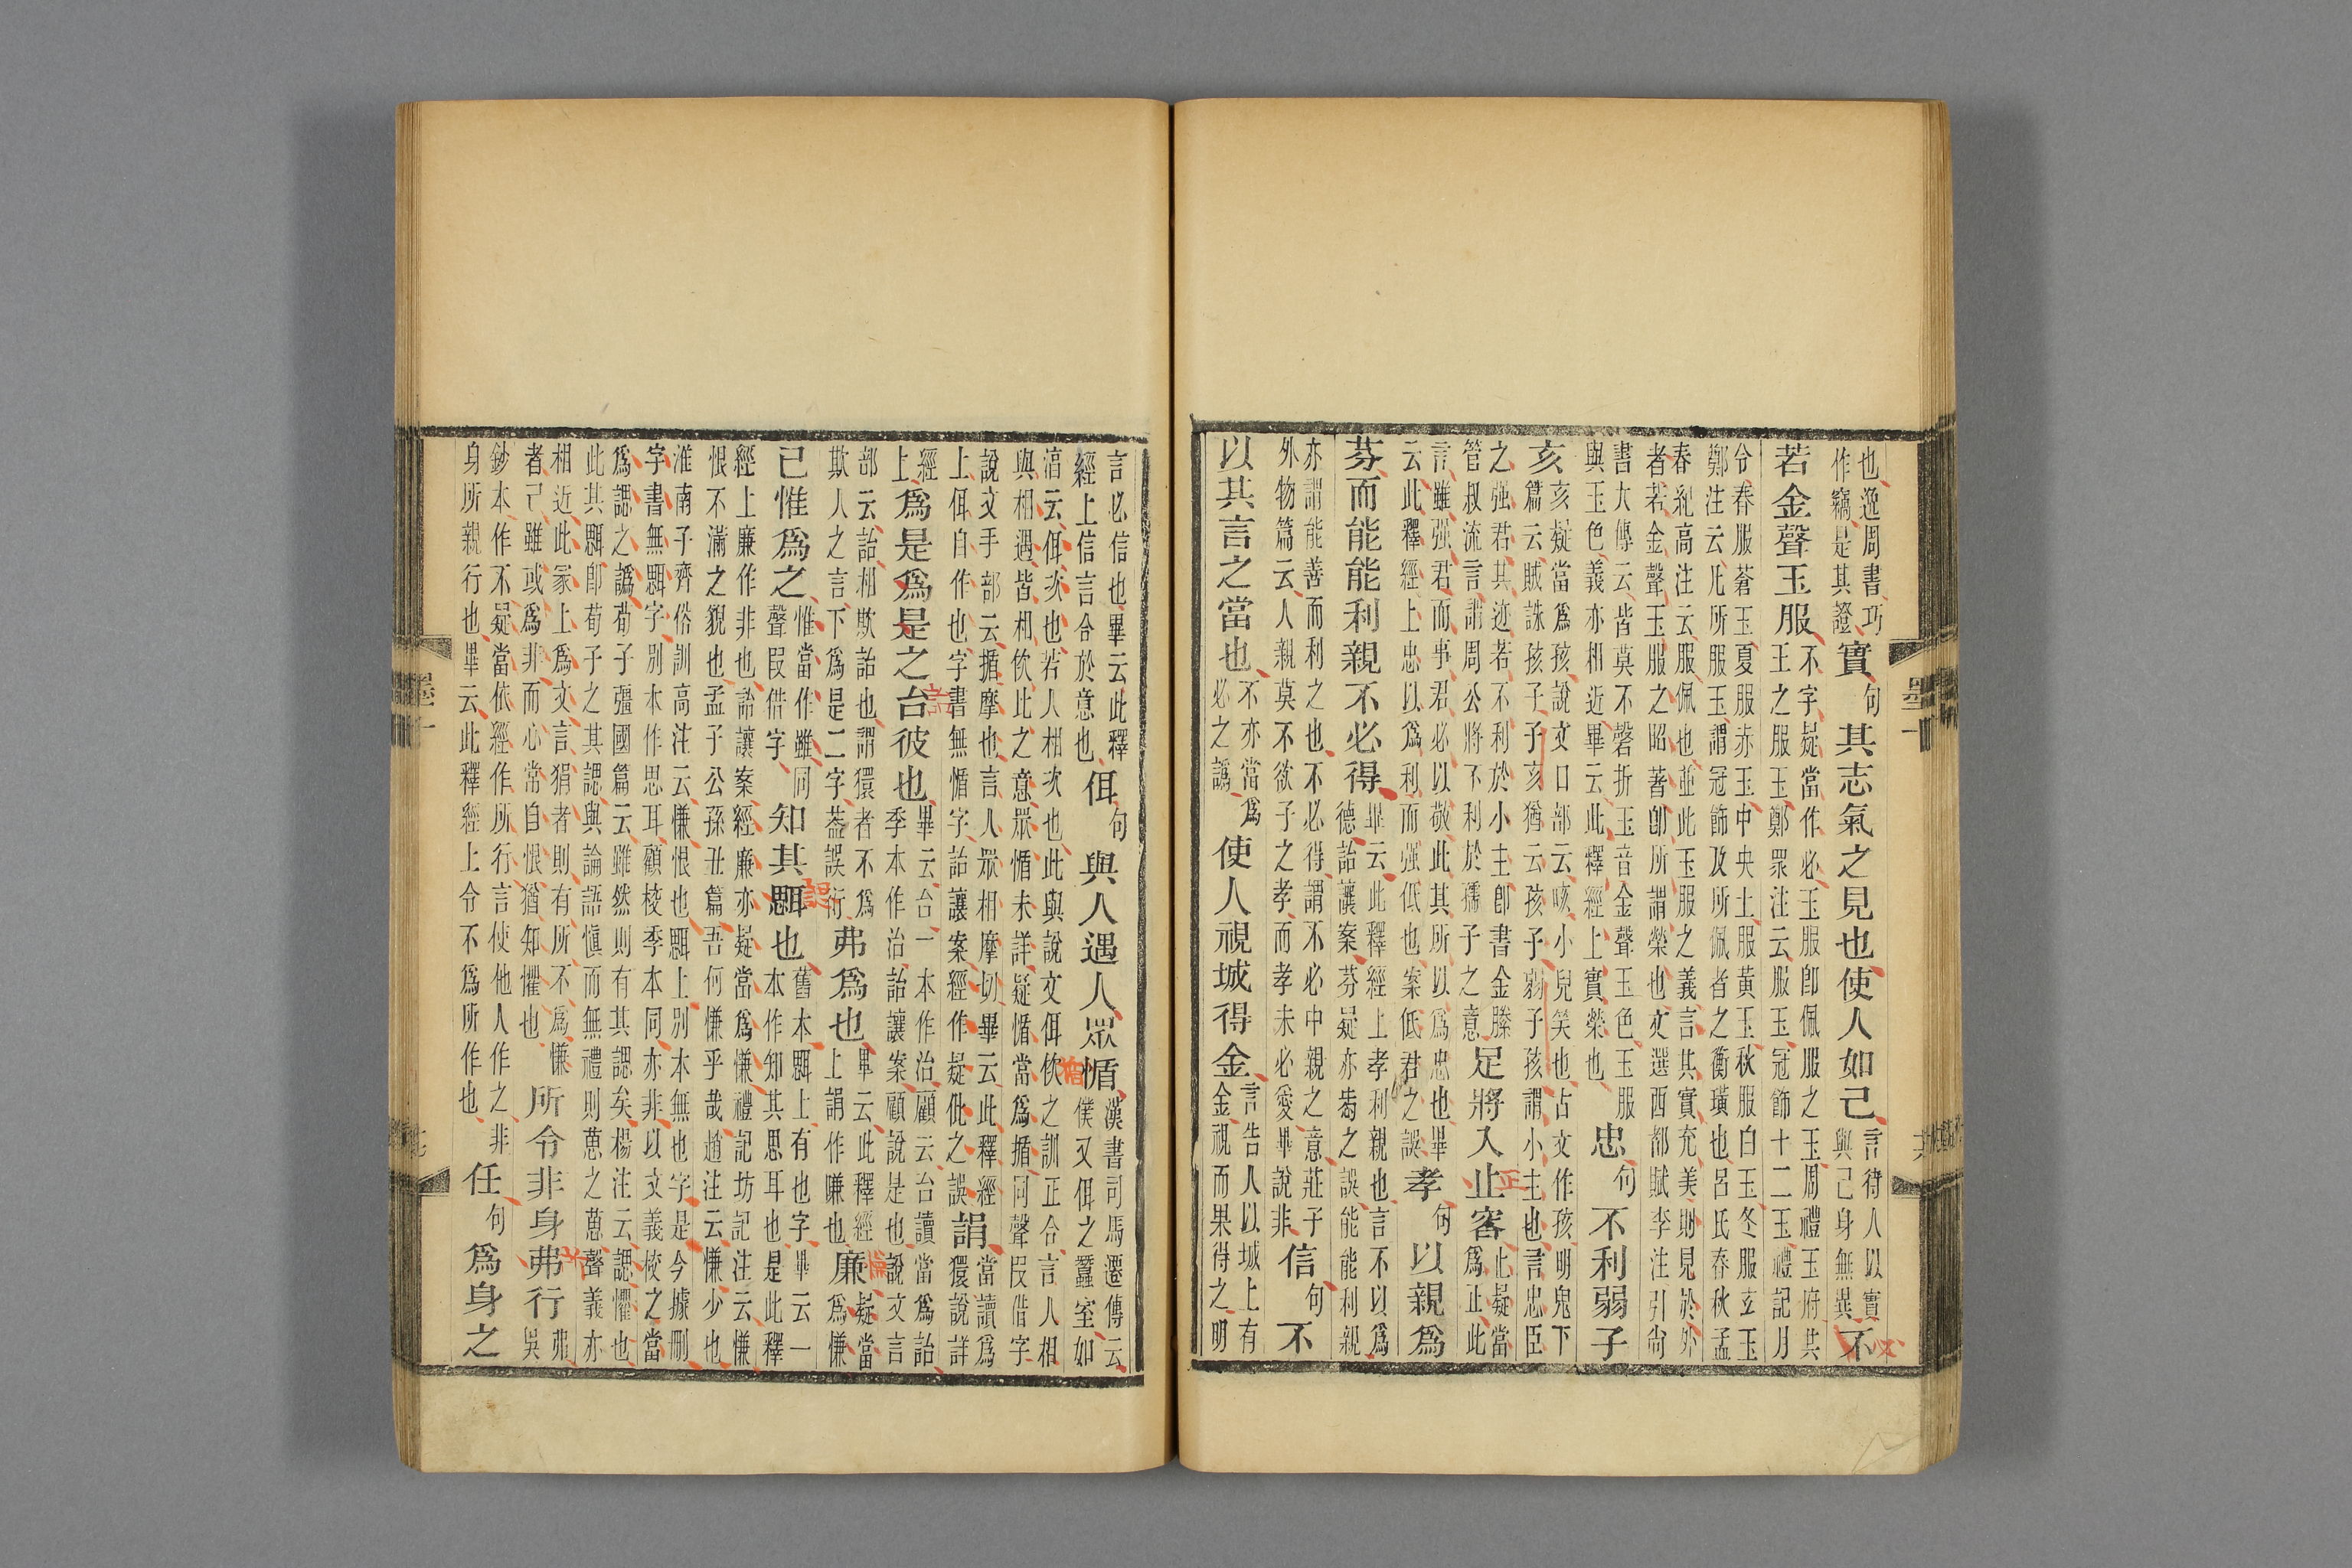 也逸周書巧作竊是其證實句其志氣之見也使人如己言待人以實與己身無異不
若金聲玉服不字疑當作必玉服卽佩服之玉周禮玉府其王之服玉鄭眾注云服玉冠飾十二玉禮記月
令春服蒼玉夏服赤玉中央土服黃玉秋服白玉冬服玄玉鄭注云凡所服玉謂冠飾及所佩者之衡璜也呂氏春秋孟
春紀高注云服佩也並此玉服之義言其實充美則見於外者若金聲玉服之昭著卽所謂榮也文選西都賦李注引尚
書大傳云皆莫不磬折玉音金聲玉色玉服與玉色義亦相近畢云此釋經上實榮也忠句不利弱子
亥亥疑當爲孩說文口部云咳小兒笑也古文作孩明鬼下篇云賊誅孩子子亥猶云孩子弱子孩謂小主也言忠臣
之强君其迹若不利於小主卽書金縢管叔流言謂周公將不利於孺子之意足將入止容止疑當爲正此
言雖强君而事君必以敬此其所以爲忠也畢云此釋經上忠以爲利而强低也案低君之誤孝句以親爲
芬而能能利親不必得畢云此釋經上孝利親也言不以爲德詒讓案芬疑亦之誤能能利親
亦謂能善而利之也不必得謂不必中親之意莊子外物篇云人親莫不欲子之孝而孝未必愛畢說非信句不
以其言之當也不亦當爲必之譌使人視城得金言告人以城上有金視而果得之明
言必信也畢云此釋經上信言合於意也佴句與人遇人眾㥀漢書司馬遷傳云僕又佴之蠶室如
湻云佴次也若人相次也此與說文佴佽之訓正合言人相與相遇皆相佽比之意眾㥀未詳疑㥀當爲揗同聲叚借字
說文手部云揗摩也言人眾相摩切畢云此釋經上佴自作也字書無㥀字詒讓案經作疑仳之誤䛓當讀爲獧說詳
經上爲是爲是之台彼也畢云台一本作治顧云台讀當爲詒季本作治詒讓案顧說是也說文言
部云詒相欺詒也謂獧者不爲欺人之言下爲是二字葢誤衍弗爲也畢云此釋經上䛓作嗛也廉疑當爲慊
己惟爲之惟當作雖同聲叚借字知其䚶也舊本䚶上有也字畢云一本作知其思耳也是此釋
經上廉作非也詒讓案經廉亦疑當爲慊禮記坊記注云慊恨不滿之貌也孟子公孫丑篇吾何慊乎哉趙注云慊少也
淮南子齊俗訓高注云慊恨也䚶上別本無也字是今據刪字書無䚶字別本作思耳顧校季本同亦非以文義校之當
爲諰之譌荀子彊國篇云雖然則有其諰矣楊注云諰懼也此其䚶卽荀子之其諰與論語愼而無禮則葸之葸聲義亦
相近此冡上爲文言狷者則有所不爲慊者己雖或爲非而心常自恨猶知懼也所令非身弗行弗吳
鈔本作不疑當依經作所行言使他人作之非身所親行也畢云此釋經上令不爲所作也任句爲身之
墨十